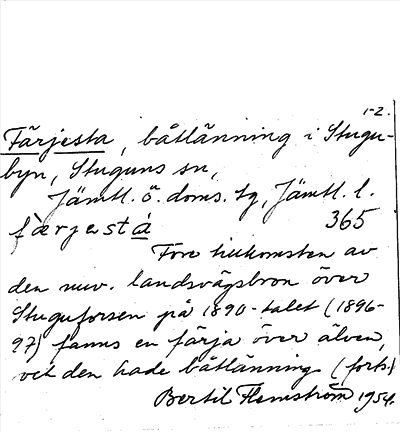 1-2.
Färjesta, båtlänning i Stugu-
byn, Stuguns sn,
Jämtl. ö. doms. tg, Jämtl. l.
fæ̀rjestá 365
Före tillkomsten av
den nuv. landsvägsbron över
Stuguforsen på 1890-talet (1896-
97) fanns en färja över älven,
och den hade båtlänning (forts.)
Bertil Flemström 1954.